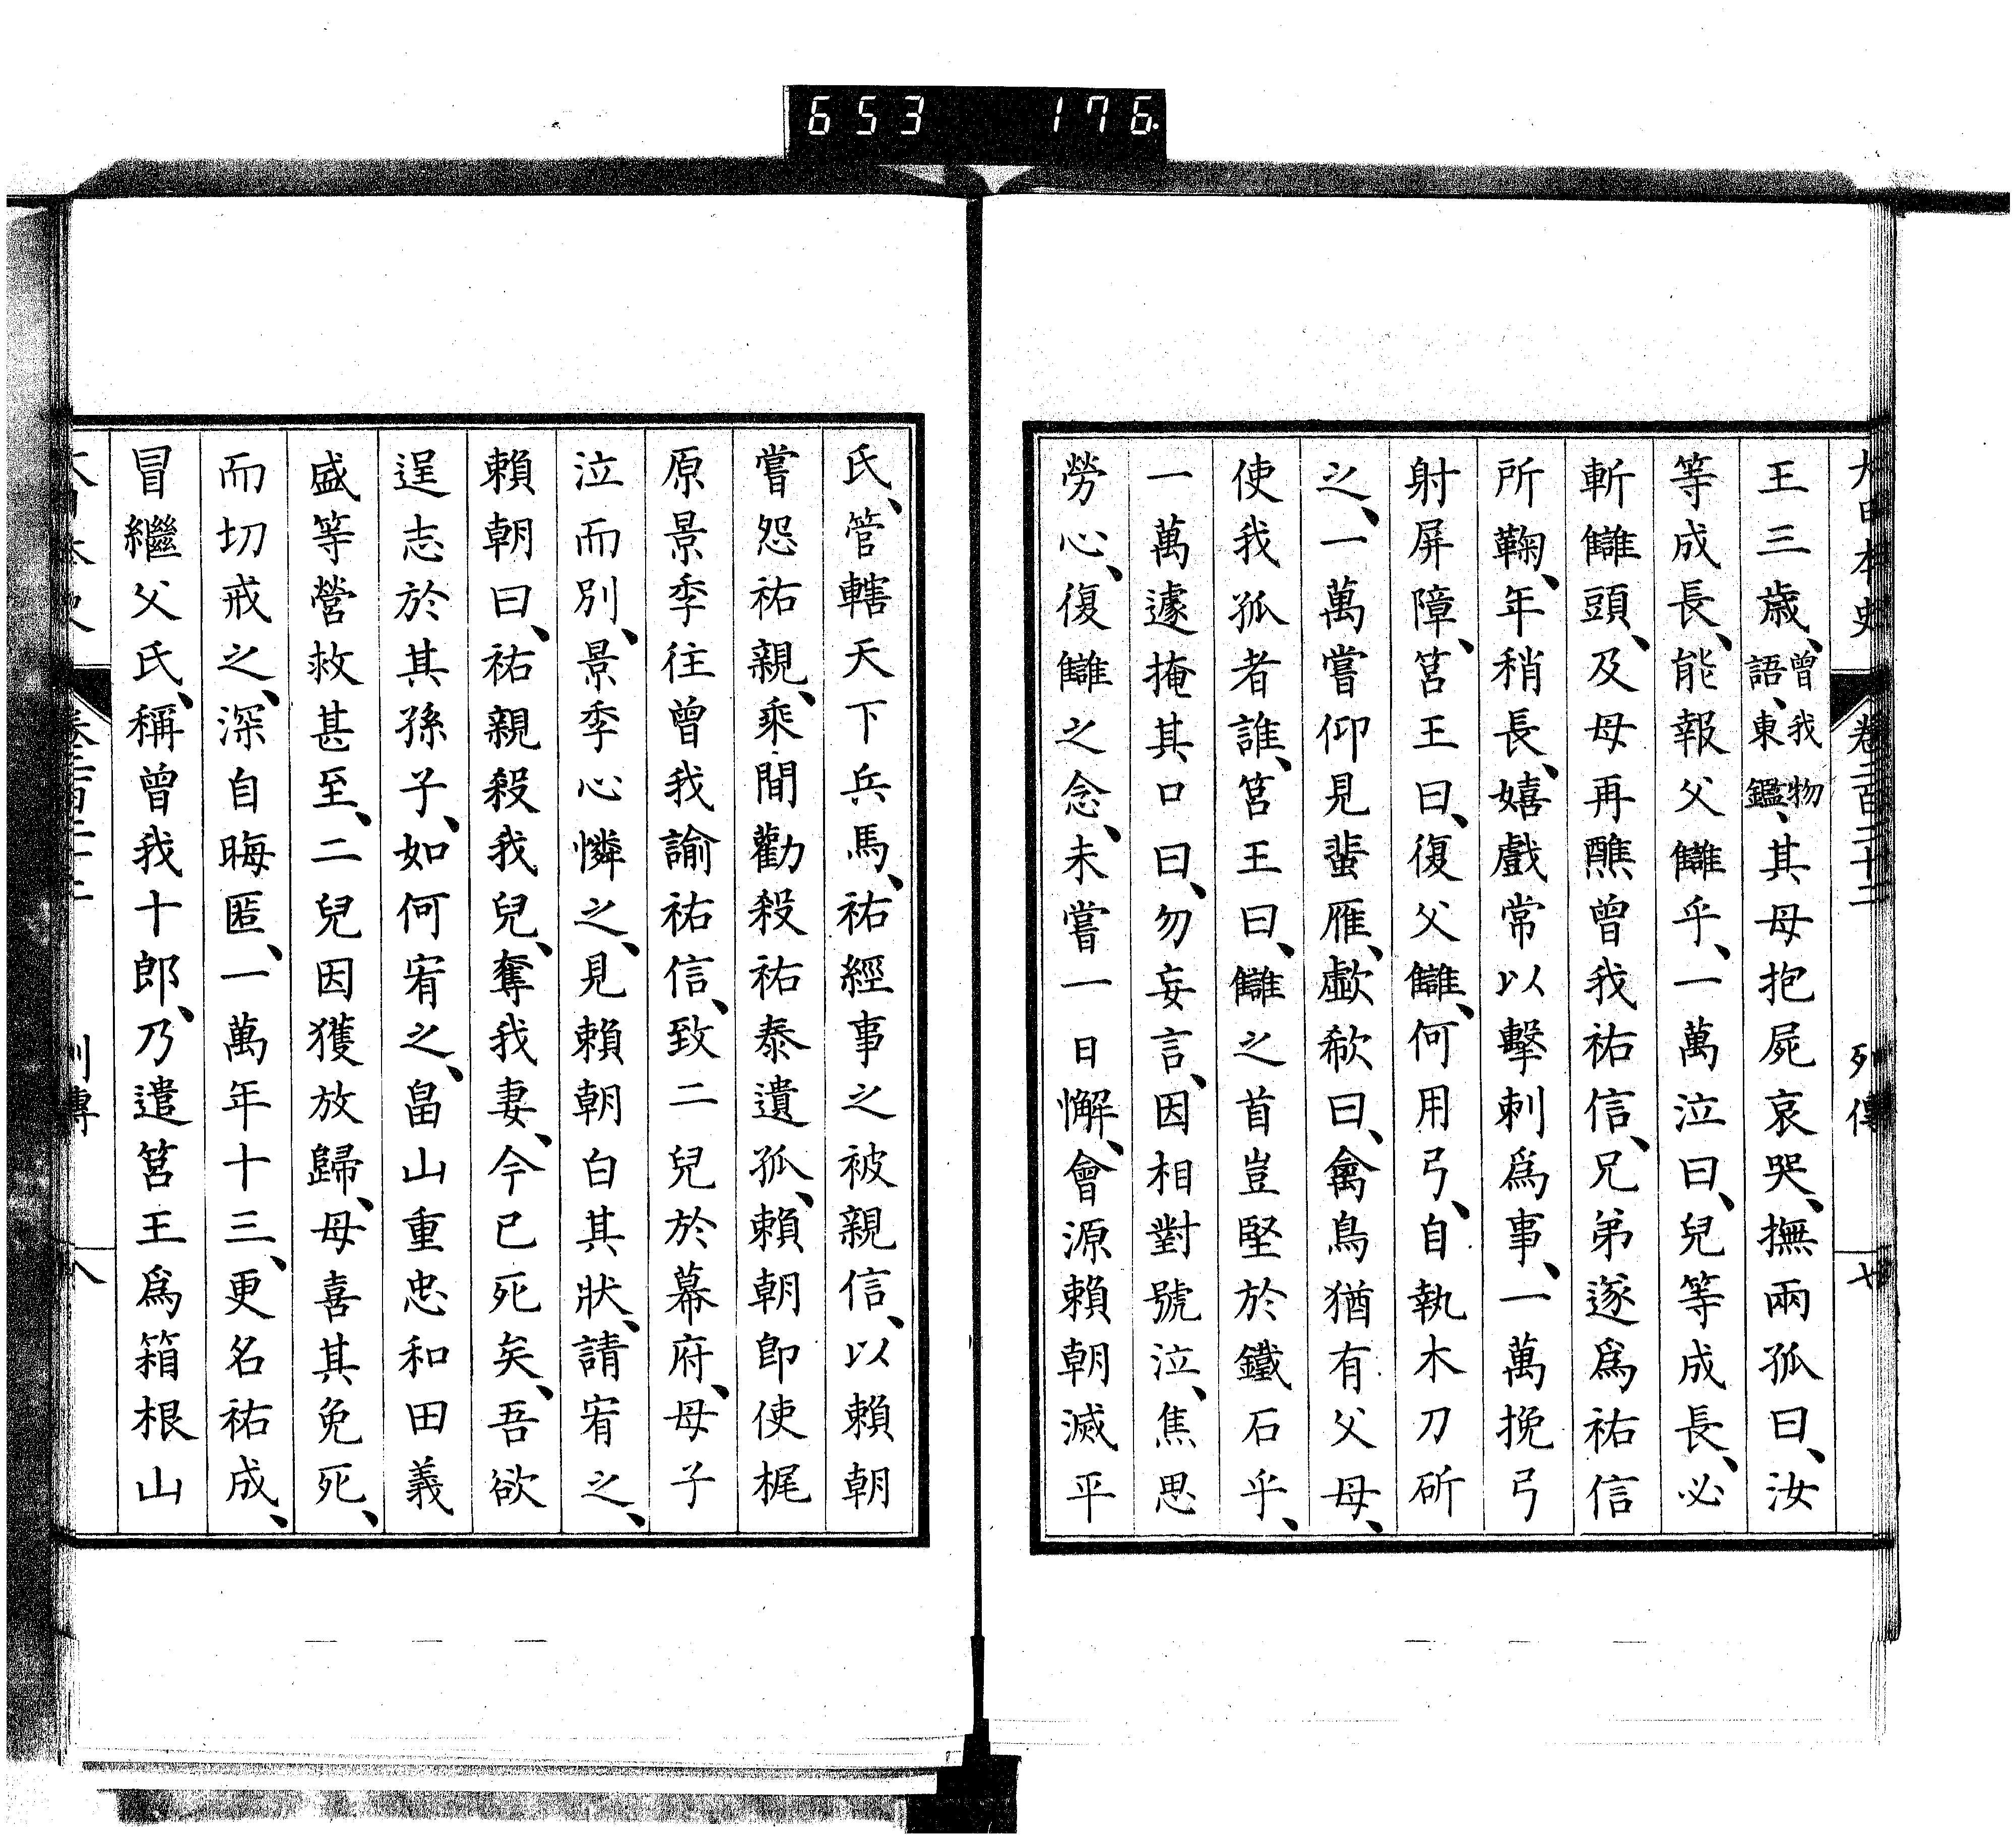 653 176
大日本史 卷二百二十二 列傳 七
王三歲、曾我物語、東鑑、其母抱屍哀哭、撫兩孤曰、汝
等成長、能報父讎乎、一萬泣曰、兒等成長、必
斬讎頭、及母再醮曾我祐信、兄弟遂爲祐信
所鞠、年稍長、嬉戲常以擊刺爲事、一萬挽弓
射屏障、筥王曰、復父讎、何用弓、自執木刀斫
之、一萬嘗仰見蜚雁、歔欷曰、禽鳥猶有父母、
使我孤者誰、筥王曰、讎之首豈堅於鐵石乎、
一萬遽掩其口曰、勿妄言、因相對號泣、焦思
勞心、復讎之念、未嘗一日懈、會源賴朝滅平
氏、管轄天下兵馬、祐經事之被親信、以賴朝
嘗怨祐親、乘閒勸殺祐泰遺孤、賴朝卽使梶
原景季往曾我諭祐信、致二兒於幕府、母子
泣而別、景季心憐之、見賴朝白其狀、請宥之、
賴朝曰、祐親殺我兒、奪我妻、今已死矣、吾欲
逞志於其孫子、如何宥之、畠山重忠和田義
盛等營救甚至、二兒因獲放歸、母喜其免死、
而切戒之、深自晦匿、一萬年十三、更名祐成、
冒繼父氏、稱曾我十郎、乃遣筥王爲箱根山
列傳 八